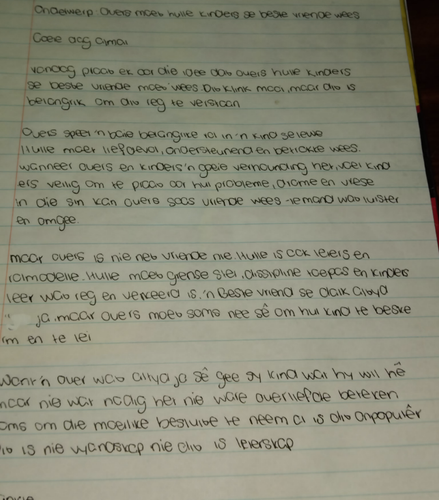 Onderwerp: Ouers moet hulle kinders se beste vriende wees
Goeie dag almal
Vandag praat ek oor die idee dat ouers hulle kinders
se beste vriende moet wees Dit klink mooi, maar dit is
belangrik om dit reg te verstaan
Ouers speel 'n baie belangrike rol in 'n kind se lewe
Hulle moet liefdevol, ondersteunend en betrokke wees.
Wanneer ouers en kinders 'n goeie verhouding het, voel kind
ers veilig om te praat oor hul probleme, drome en vrese
in die sin kan ouers soos vriende wees -iemand wat luister
en omgee.
maar ouers is nie net vriende nie Hulle is ook leiers en
rolmodelle. Hulle moet grense stel, dissipline toepas en kinders
leer wat reg en verkeerd is. 'n Beste vriend sê dalk altyd
ja, maar ouers moet soms nee sê om hul kind te beske
rm en te lei
Want 'n ouer wat altyd ja sê gee sy kind wat hy wil hê
maar nie wat nodig het nie ware ouerliefde beteken
soms om die moeilike besluite te neem al is dit onpopulêr
Dit is nie vyandskap nie dit is leierskap